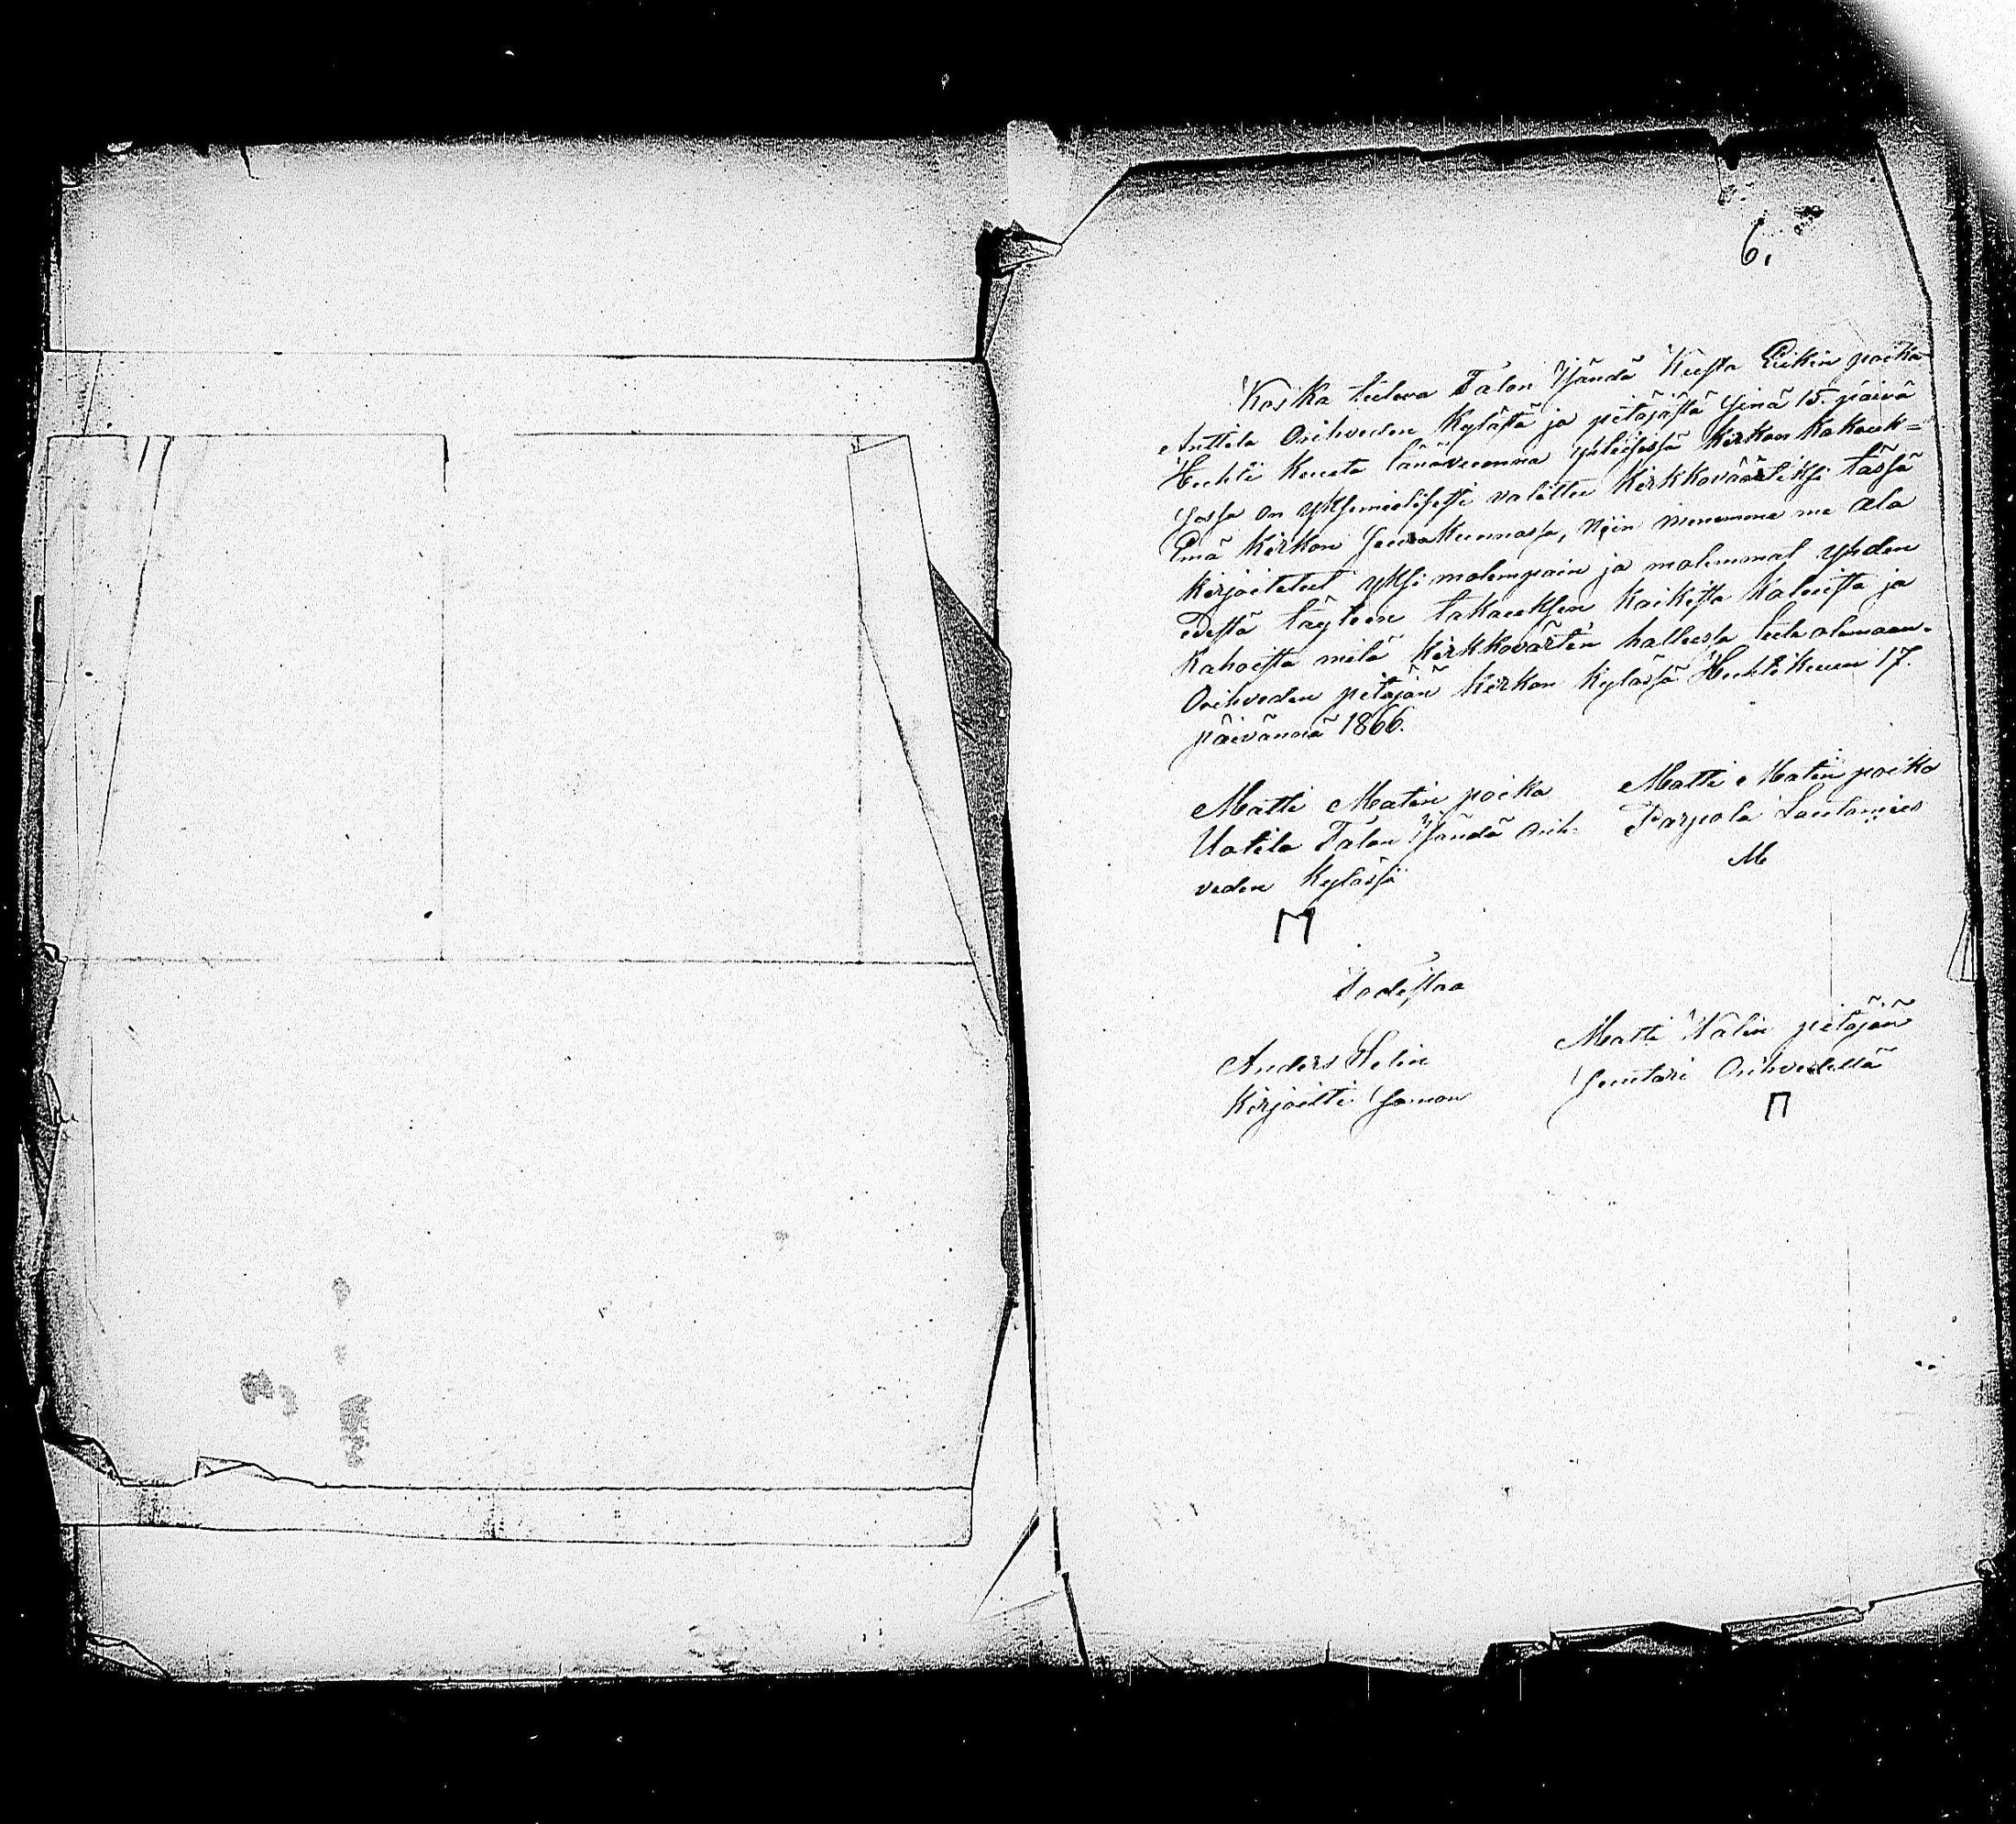 6.
Koska tuleva Talon Isändä Kusta Eriikin poika
Anttila Orihveden Kylästä ja pitäjästä Sinä 15. päivä
Huhti Kuuta tänävuonna Yleisessä Kirkon kokouk=
sessa on Yksimielisesti valittu Kirkkoväärtiksi tässä
Emä Kirkon Seurakunnassa, Niin menemme me ala
Kirjoitetut Yksi molempain ja molemmat Yhden
edestä täyteen takauksen Kaikista Kaluista ja
Rahoista mitä Kirkkovärtin hallussa tule olemaan.
Orihveden pitäjän Kirkon Kylässä Huhtikuun 17.
päivännä 1866.
Matti Matin poika
Uotila Talon Isändä Orih-
veden Kylässä
M
Matti Matin poika
Parpola Lautamies
M
Todistaa
Anders Helin
Kirjoitti Saman
Matti Walin pitäjän
Suutari Orihvedellä
П